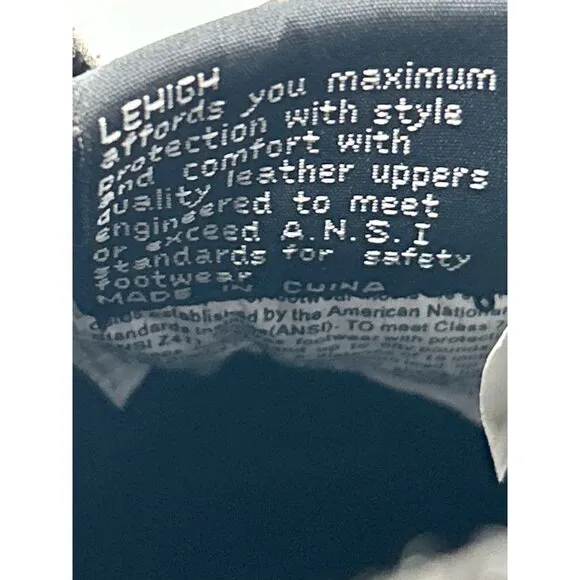 LEHIGH
affords you maximum
protection with style
and comfort with
quality leather uppers
engineered to meet
or exceed A.N.S.I
standards for safety
footwear
MADE IN CUINA
established by the American National
standards (ANSI). TO meet Class 7
footwear with protect